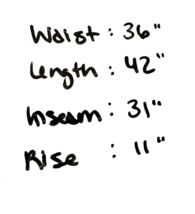 Waist : 36"
Length : 42"
Inseam : 31"
Rise : 11"